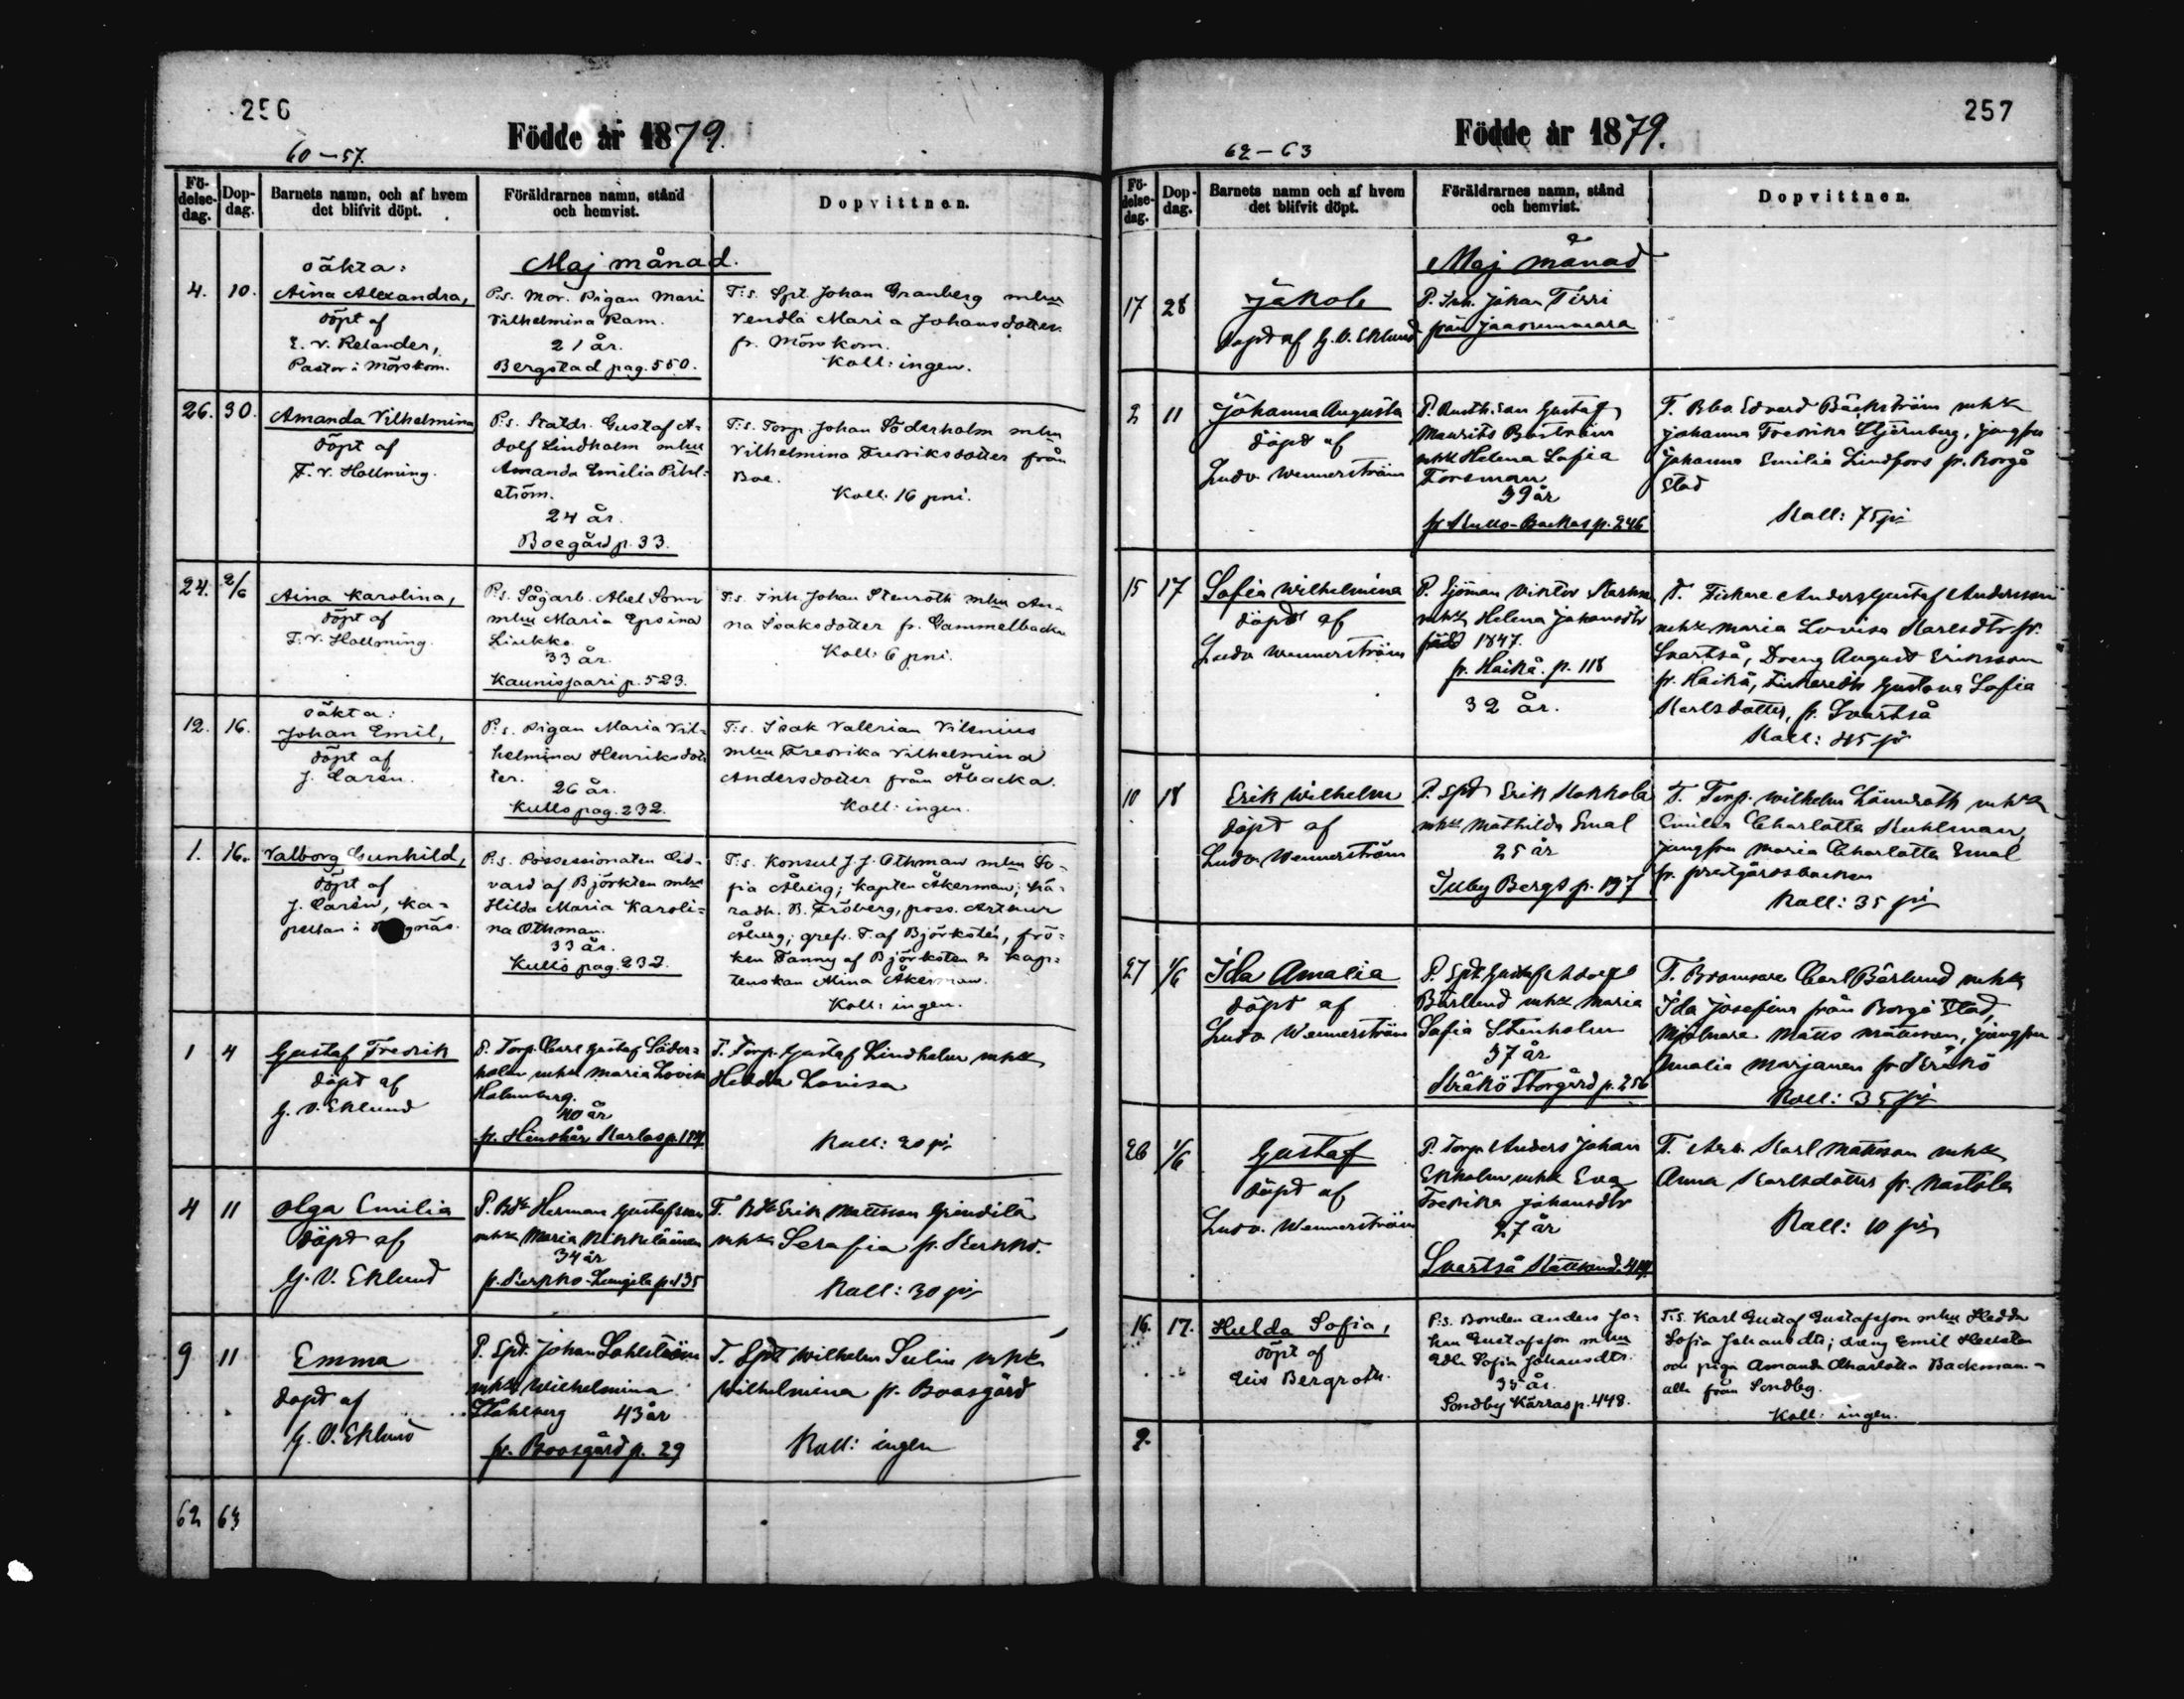 256
Födde år 1879.
60-57.
Födelsedag.
Dopdag.
Barnets namn, och af hvem
det blifvit döpt.
Föräldrarnes namn, stånd
och hemvist.
Dopvittnen.
Maj månad.
4. 10.
oäkta:
Aina Alexandra,
döpt af
E. V. Relander,
Pastor i Mörskom.
P:s. Mor. Pigan Mari
Vilhelmina Ram.
21 år.
Bergstad pag. 550.
T:s. Spt. Johan Granberg mhu
Vendla Maria Johansdotter
fr. Mörskom.
Koll: ingen.
26. 30.
Amanda Vilhelmina
döpt af
F. V. Hollming.
P:s. Statdr. Gustaf A-
dolf Lindholm mhu
Amanda Emilia Pihl-
ström.
24 år.
Boegård p. 33.
T:s. Torp. Johan Söderholm mhu
Vilhelmina Fredriksdotter från
Boe.
Koll. 16 pni.
24. 2/6
Aina Karolina,
döpt af
F. V. Hollming.
P:s. Sågarb. Abel Sonn
mhu Maria Epsina
Liukko.
33 år.
Kaunissaari p. 523.
T:s. Inh. Johan Stenroth mhu An-
na Isaksdotter fr. Gammelbacka
Koll. 6 pni.
12. 16.
oäkta:
Johan Emil,
döpt af
J. Carén.
P:s. Pigan Maria Vil-
helmina Henriksdot-
ter.
26 år.
Kullo pag. 232.
T:s. Isak Valerian Vilenius
mhu Fredrika Vilhelmina
Andersdotter från Åbacka.
Koll: ingen.
1. 16.
Valborg Gunhild,
döpt af
J. Carén, ka-
pellan i gnäs.
P:s. Possessionaten Ed-
vard af Björksten mhu
Hilda Maria Karoli-
na Othman.
33 år.
Kullo pag. 232.
T:s. Konsul J. J. Othman mhu So-
fia Åberg; Kapten Åkerman; hä-
radh. B. Fröberg, poss. Artur
Åberg; gref. T. af Björksten, frö-
ken Fanny af Björksten & kap-
tenskan Mina Åkerman.
Koll: ingen.
1 4
Gustaf Fredrik
döpt af
G. V. Eklund
P. Torp. Carl Gustaf Söder-
holm mhu Maria Lovisa
Holmberg.
40 år
T. Torp. Gustaf Lindholm mhu
Hedda Lovisa
Koll: 20 pi
4 11
Olga Emilia
döpt af
G. V. Eklund
P. Bde Herman Gustafsson
mhu Maria Nikkiläinen
34 år
T. Bde Erik Mattsson Grindilä
mhu Serafia fr. Kerkko.
Koll: 30 pi
9 11
Emma
döpt af
G. V. Eklund
P. Spt. Johan Sahlström
mhu Wilhelmina
Ståhlberg 43 år
fr. Boosgård p. 29
T. Spt Wilhelm Sulin mhu
Wilhelmina fr. Boosgård
Koll: ingen
62 63
257
Födde år 1879.
62-63
Födelsedag.
Dopdag.
Barnets namn och af hvem
det blifvit döpt.
Föräldrarnes namn, stånd
och hemvist.
Dopvittnen.
Maj månad
17 28
Jakob
döpt af G. V. Eklund
P. Inh. Johan Tirri
2 11
Johanna Augusta
döpt af
Ludv. Wennerström
Maurits Boström
mhu Helena Sofia
Forsman
39 år
fr Kullo-Backas p. 246
T. Edvard Bäckström mhu
Johanna Fredrika Stjernberg, jungfru
Johanna Emilia Lindfors fr. Borgå
Stad
Koll: 75 pi
15 17
Sofia Wilhelmina
döpt af
Ludv. Wennerström
P. Sjöman Viktor
mhu Helena Johansdtr
född 1847.
fr. Haikå. p. 118
32 år.
T. Fiskare Anders Gustaf Andersson
mhu Maria Lovisa Karlsdtr fr.
Svartså, Dräng August Eriksson
fr. Haikå, Gustava Sofia
Karlsdotter, fr. Svartså
Koll: 45 pi
10 18
Erik Wilhelm
döpt af
Ludv. Wennerström
P. Spt Erik Kokkola
mhu Mathilda Emal
25 år
Juby Bergs p. 197
T. Torp. Wilhelm Lönnroth mhu
Emilia Charlotta Kuhlman,
jungfru Maria Charlotta Emal
fr. prestgårdsbacken
Koll: 35 pi
27 1/6
Ida Amalia
döpt af
Ludv. Wennerström
P. Spt. Gustaf Adolf
Bärlund mhu Maria
Sofia Stenholm
37 år
Kråkö Storgård p. 256
T. Bromsare Carl Bärlund mhu
Ida Josefina från Borgå Stad,
Mjölnare Matts Mattsson, jungfru
Amalia Marjanen fr Kråkö
Koll: 35 pi
26 1/6
Gustaf
döpt af
Ludv. Wennerström
P. Torp. Anders Johan
Ekholm mhu Eva
Fredrika Johansdtr
27 år
T. Arb. Karl Mattsson mhu
Anna Karlsdotter fr. Nastola
Koll: 10 pi
16. 17.
Hulda Sofia,
döpt af
Elis Bergroth.
P:s. Bonden Anders Jo-
han Gustafsson mhu
Edla Sofia Johansdtr.
35 år.
Sondby Kärras p. 448.
T:s. Karl Gustaf Gustafsson mhu Hedda
Sofia Johansdtr; dräng Emil
och piga Amanda Charlotta Backman -
alla från Sondby.
Koll: ingen.
9.